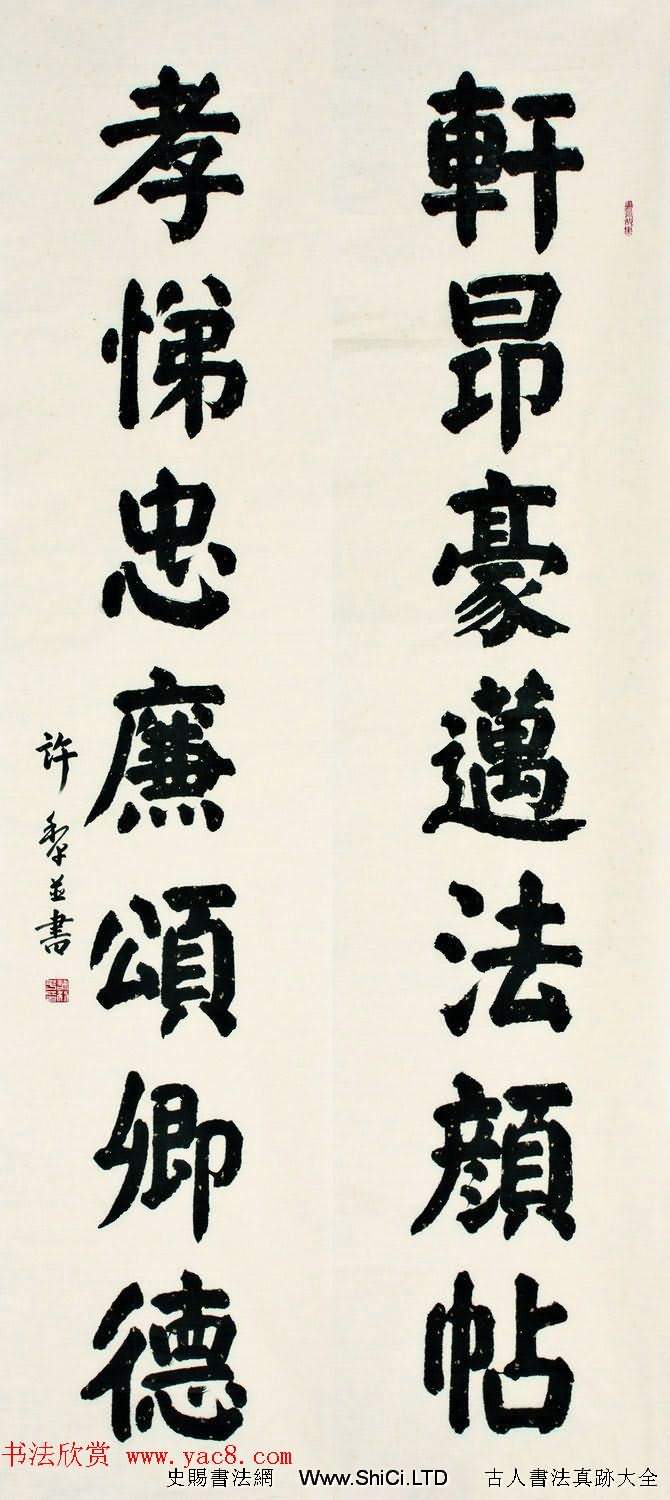 軒昂豪邁法顏帖
孝悌忠廉頌卿德
許黎並書
书法欣赏 www.yac8.com
史賜書法網 Www.ShiCi.LTD 古人書法真跡大全